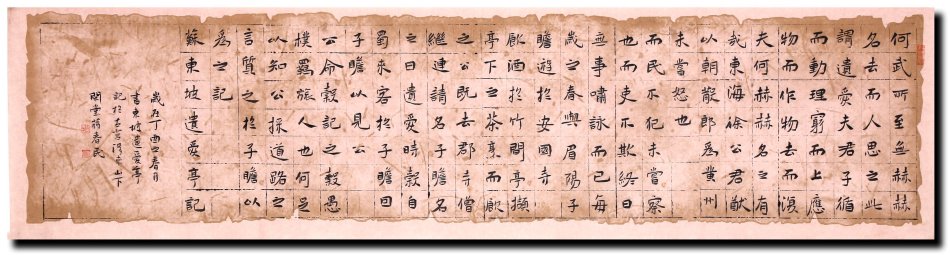 何武所至無赫赫
名去而人思之此
謂遺愛夫君子循
而動理窮而上應
物而作物去而復
夫何赫赫名之有
哉東海徐公君猷
以朝散郎為黃州
未嘗怒也
而民不犯未嘗察
也而吏不欺終日
無事嘯詠而已每
歲之春與眉陽子
瞻遊於安國寺
飲酒於竹間亭擷
亭下之茶烹而飲
之公既去郡寺僧
繼連請名子瞻名
之曰遺愛時穀自
蜀來客於子瞻因
子瞻以見公
公命穀記之穀愚
樸羈旅人也何足
以知公採道路之
言質之於子瞻以
為之記
蘇東坡遺愛亭記
歲在丁酉春月
書東坡遺愛亭
記於山下
春民